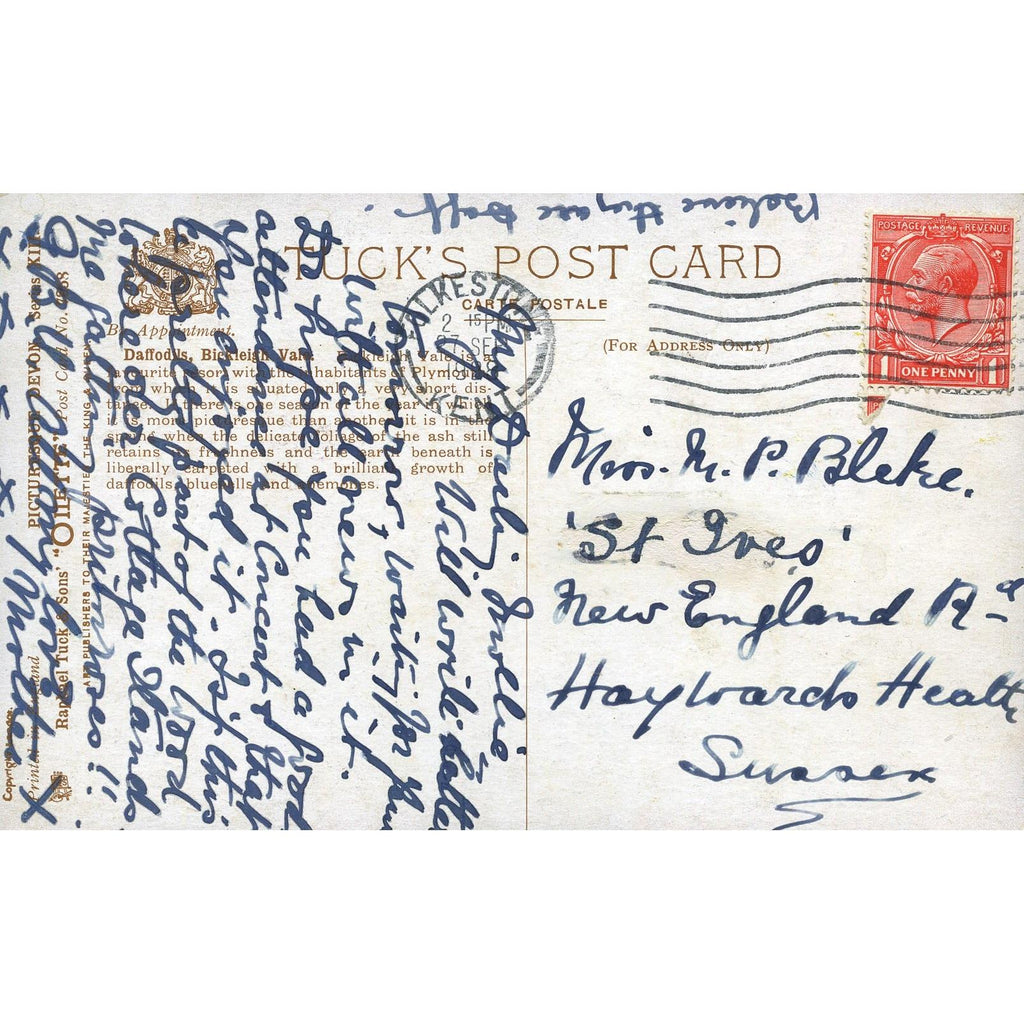 TUCK'S POST CARD
CARTE POSTALE
(FOR ADDRESS ONLY)
By Appointment.
Daffodils, Bickleigh Vale. Bickleigh Vale is a
favourite resort with the inhabitants of Plymouth
from which it is situated only a very short dis-
tance. If there is one season of the year in which
it is more picturesque than another it is in the
spring when the delicate foliage of the ash still
retains its freshness and the earth beneath is
liberally carpeted with a brilliant growth of
daffodils, bluebells and anemones.
FOLKESTONE
2 15 PM
27 SEP
KENT
POSTAGE REVENUE
1 ONE PENNY 1
Miss. M. P. Bleke.
'St Ives'
New England Rd
Haywards Heath
Sussex
My
Will write letter
tomorrow, waiting for
interview in it.
Do hope you had a good
attendance at Concert & that
you enjoyed it. Is this
the part of the wood
where our Cottage stands
are primroses!!
All my love
x x x x x
Believe they are Daff.
PICTURESQUE DEVON Series XII
Raphael Tuck & Sons' "OILETTE" Post Card No.
ART PUBLISHERS TO THEIR MAJESTIES THE KING & QUEEN
Printed in England
Copyright